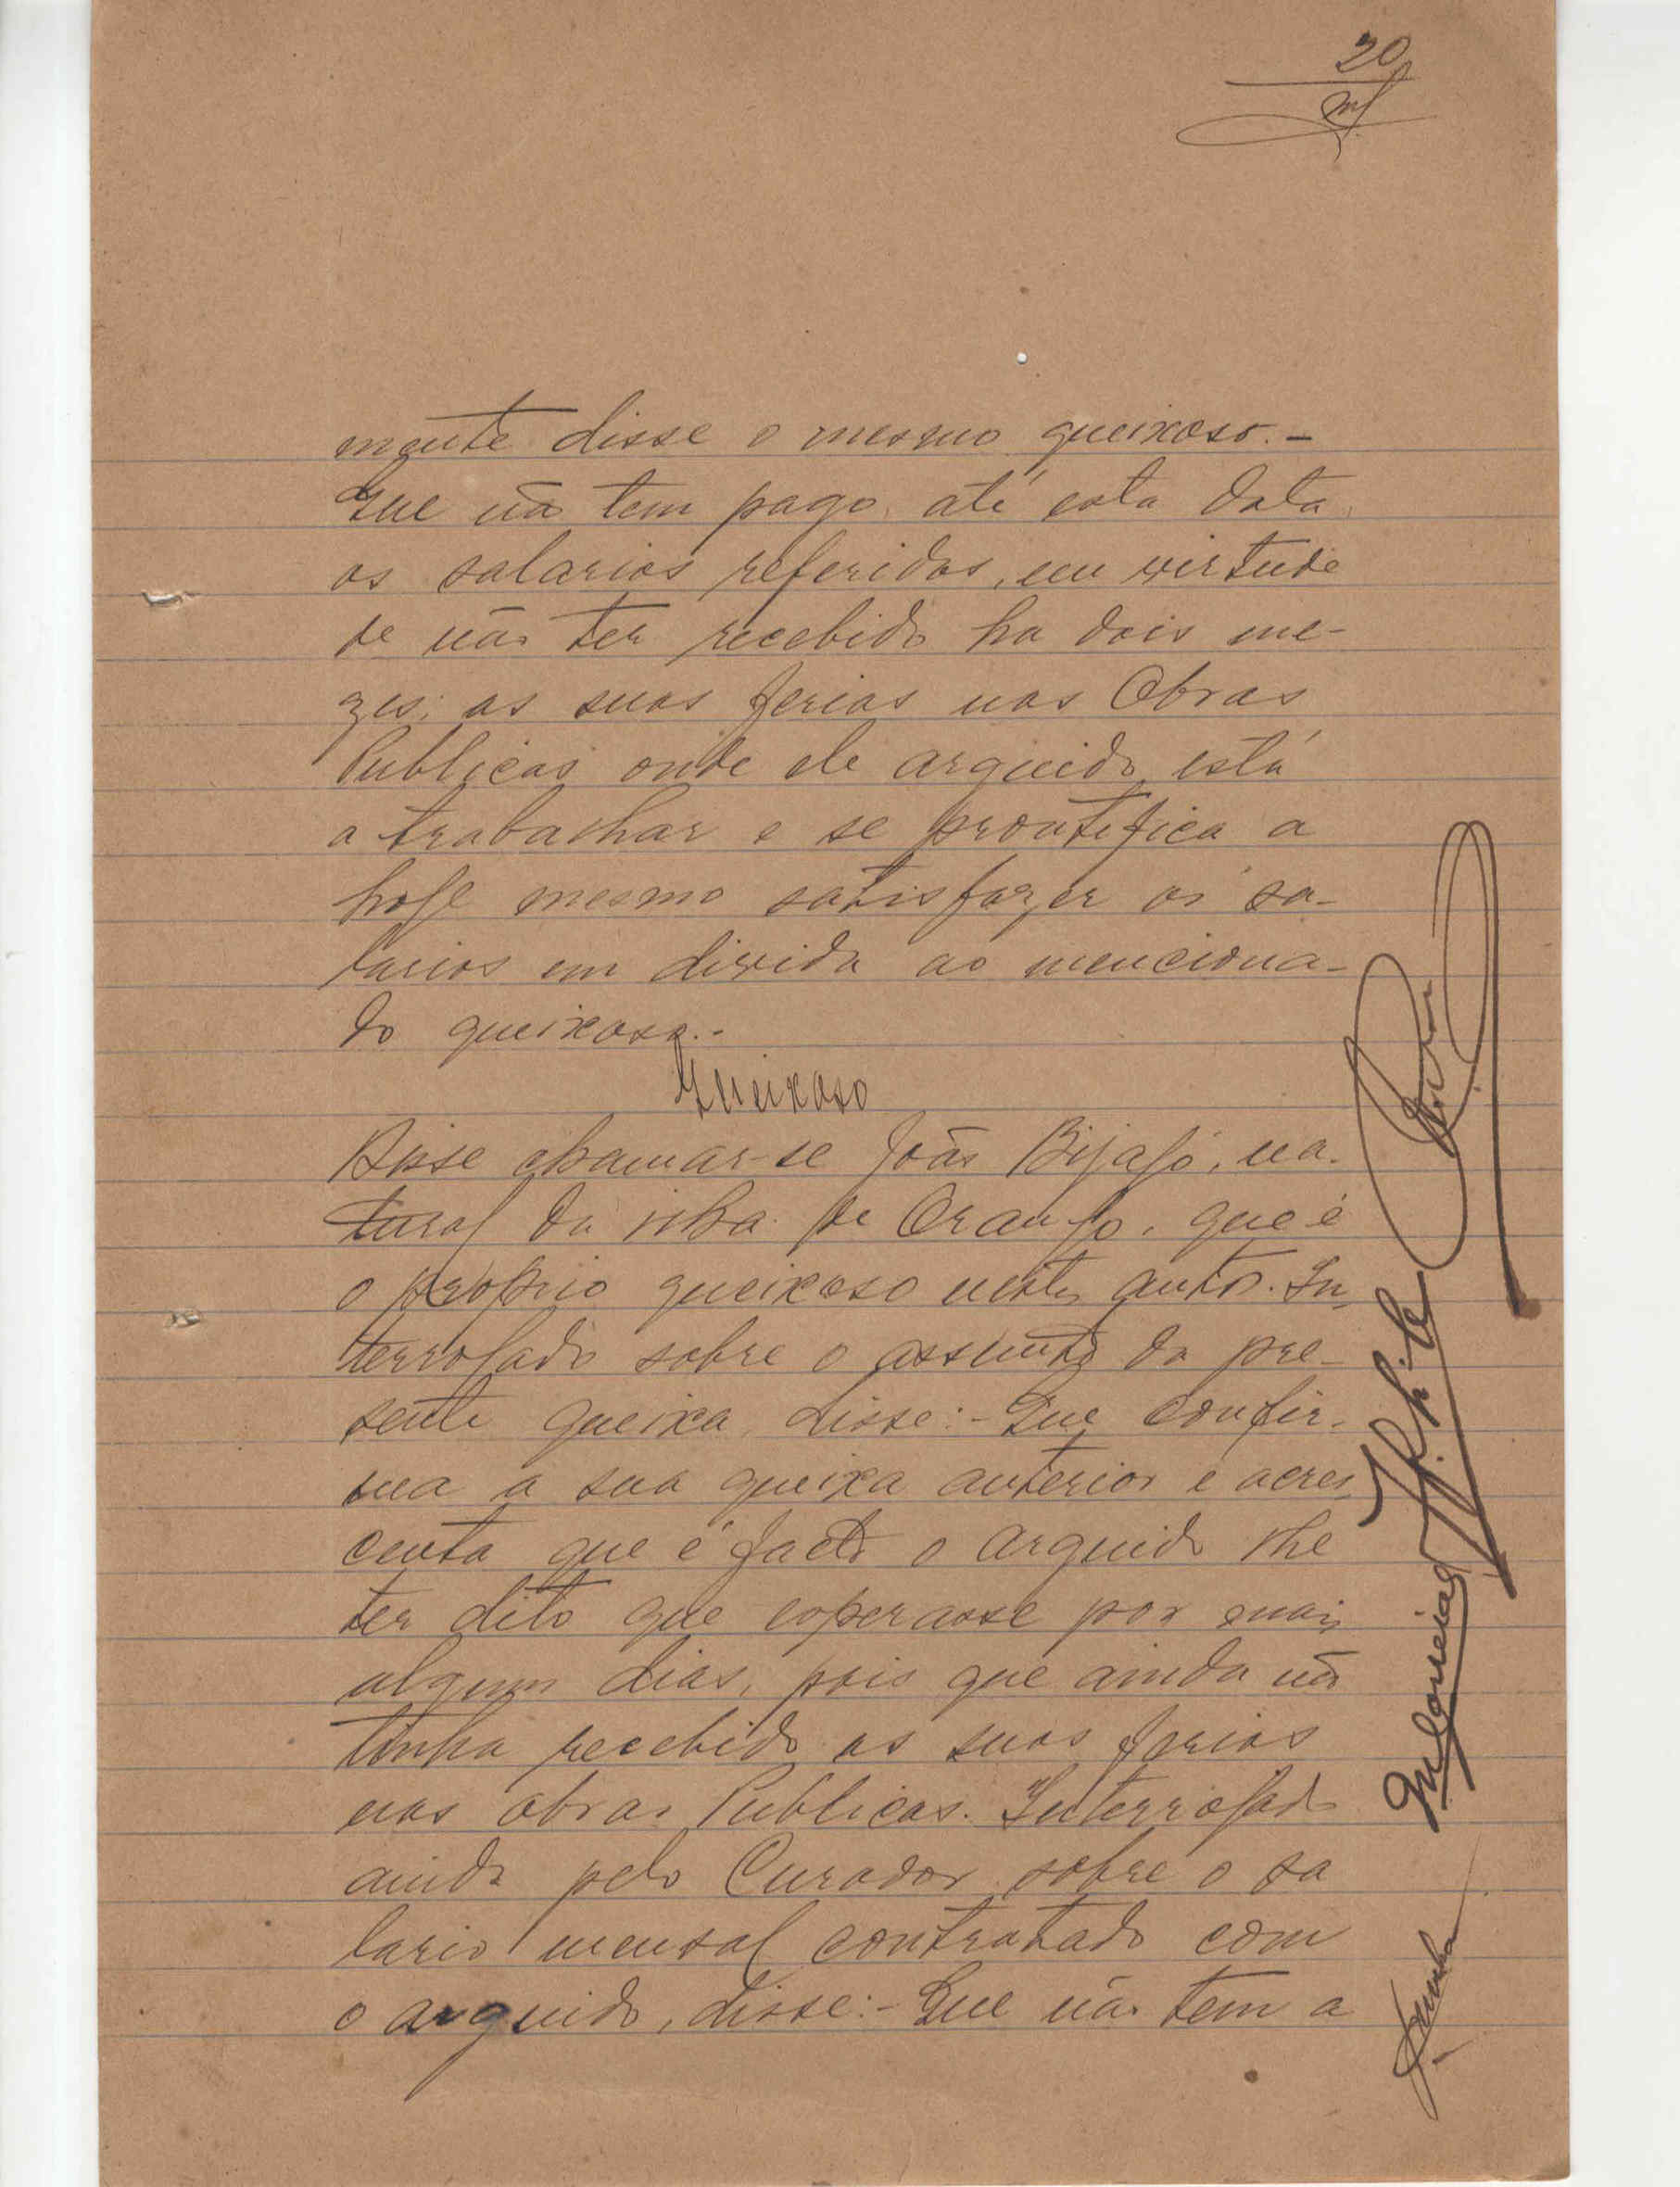 20
mente disse o mesmo queixoso. -
Que não tem pago até esta data
os salarios referidos, em virtude
de não ter recebido ha dois me-
zes, as suas ferias nas Obras
Publicas onde ele arguido está
a trabalhar e se prontifica a
hoje mesmo satisfazer os sa-
larios em divida ao menciona-
do queixoso. -
Queixoso
Disse chamar-se João Bijagó, na-
tural da ilha de Orango, que é
o proprio queixoso nestes autos. In-
terrogado sobre o assunto da pre-
sente queixa, disse: - Que confir-
ma a sua queixa anterior e acres-
centa que é facto o arguido lhe
ter dito que esperasse por mais
alguns dias, pois que ainda não
tinha recebido as suas ferias
nas obras Publicas. Interrogado
ainda pelo Curador sobre o sa
lario mensal contratado com
o arguido, disse: - Que não tem a